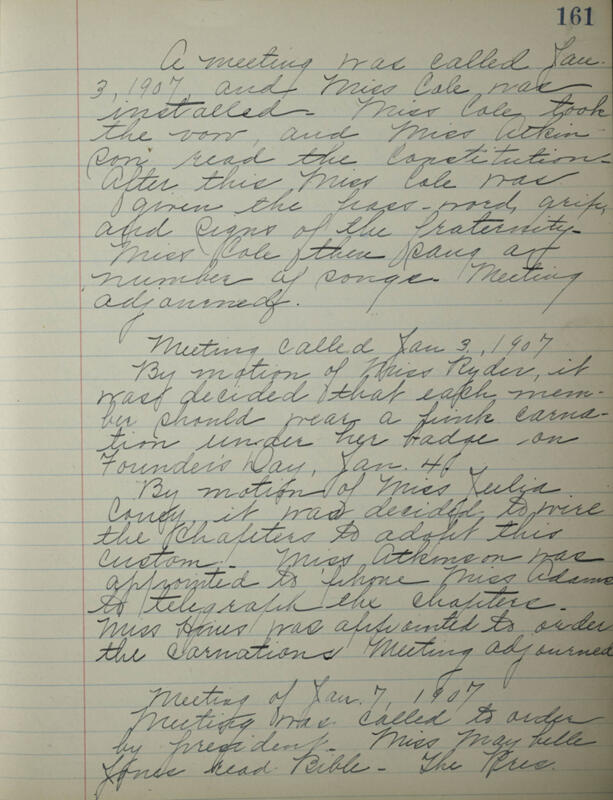 161
A meeting was called Jan.
3, 1907, and Miss Cole was
installed. Miss Cole took
the vow, and Miss Atkin-
son read the Constitution.
After this Miss Cole was
given the pass-word, grip,
and signs of the fraternity.
Miss Cole then sang a
number of songs. Meeting
adjourned.
Meeting called Jan 3, 1907
By motion of Miss Ryder, it
was decided that each mem-
ber should wear a pink carna-
tion under her badge on
Founder's Day, Jan. 4.
By motion of Miss Julia
it was decided to wire
the Chapters to adopt this
custom. Miss Atkinson was
appointed to 'phone Miss Adams
to telegraph the chapters.
Miss Hines was appointed to order
the carnations Meeting adjourned
Meeting of Jan. 7, 1907
Meeting was called to order
by president. Miss Maybelle
Jones read Bible. The Pres.